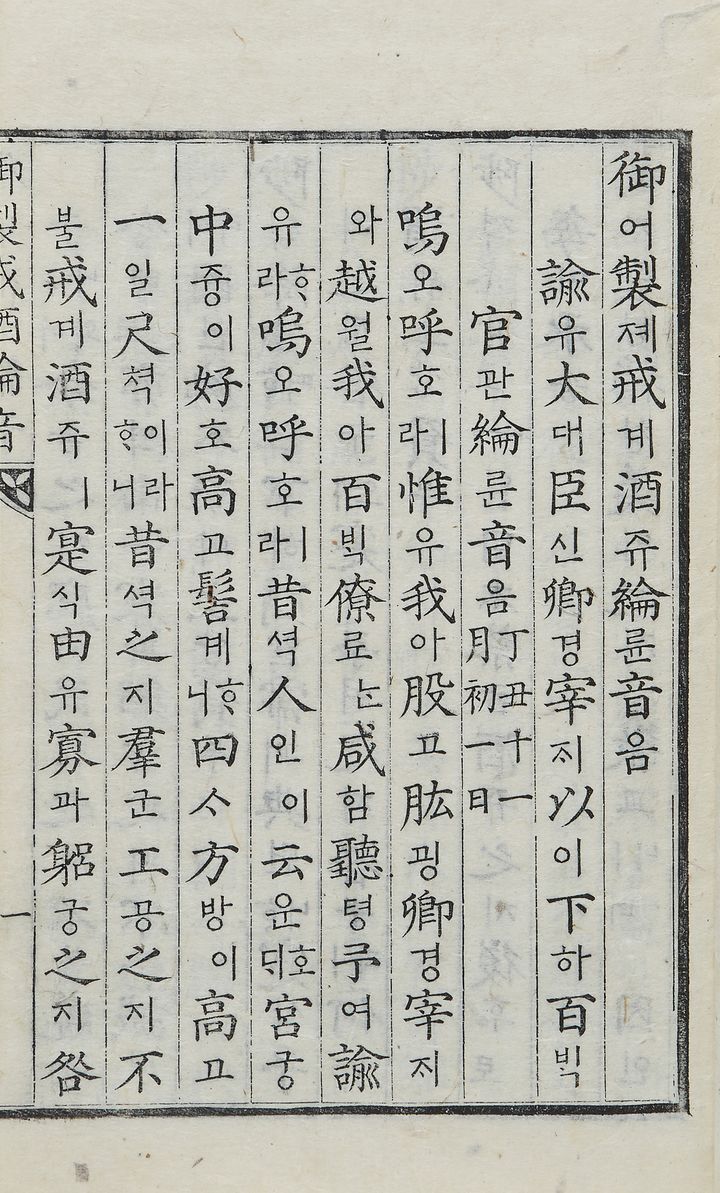 御어製졔戒계酒쥬綸륜音음
諭유大대臣신卿경宰ᄌᆡ以이下하百ᄇᆡᆨ
官관綸륜音음丁丑十一月初一日
嗚오呼호ㅣ라惟유我아股고肱굉卿경宰ᄌᆡ
와越월我아百ᄇᆡᆨ僚료ᄂᆞᆫ咸함聽텽予여諭
유ᄒᆞ라嗚오呼호ㅣ라昔셕人인이云운호ᄃᆡ宮궁
中즁이好호高고髻계ᄒᆞ니四ᄉᆞ方방이高고
一일尺쳑이라ᄒᆞ니昔셕之지羣군工공之지不
불戒계酒쥬ㅣ寔식由유寡과躬궁之지咎
御製戒酒綸音 一